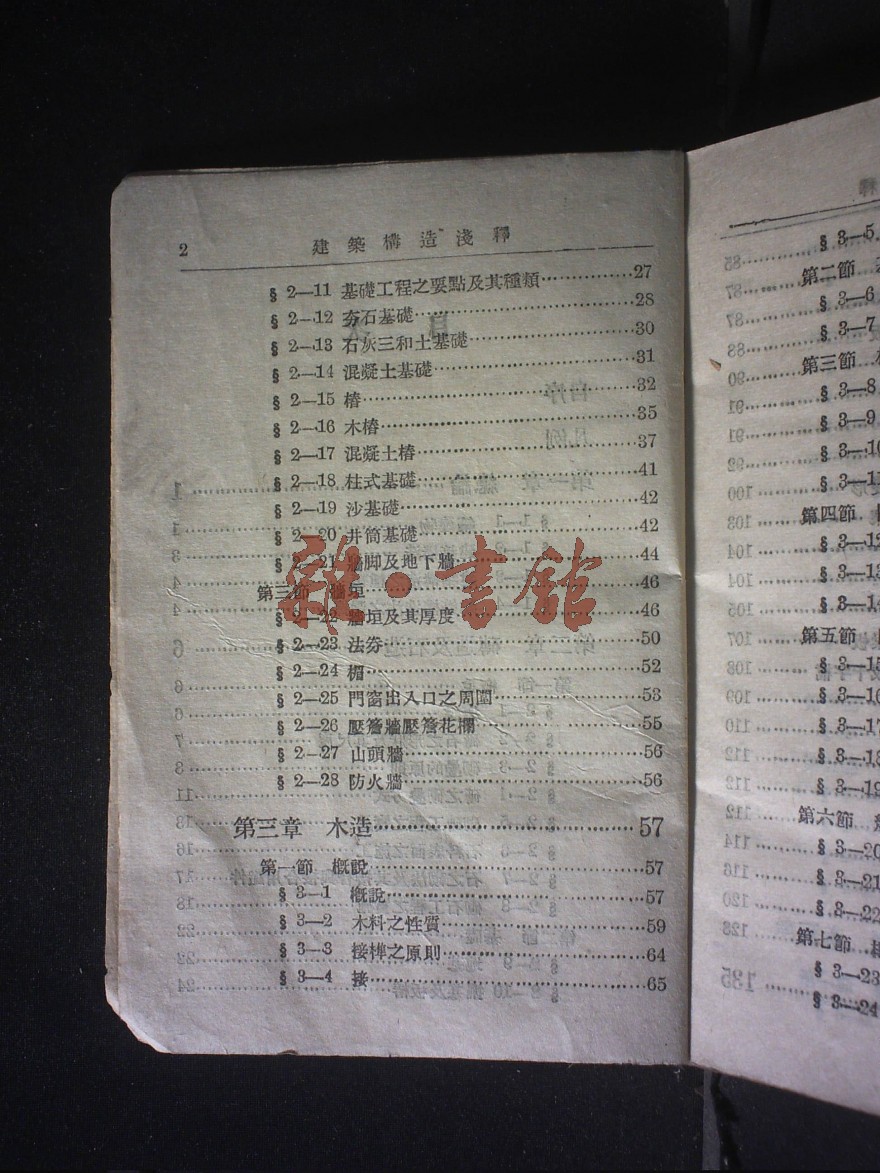 2 建築構造淺釋
§ 2—11 基礎工程之要點及其種類⋯⋯⋯27
§ 2—12 夯石基礎⋯⋯⋯28
§ 2—13 石灰三和土基礎⋯⋯⋯30
§ 2—14 混凝土基礎⋯⋯⋯31
§ 2—15 樁⋯⋯⋯32
§ 2—16 木樁⋯⋯⋯35
§ 2—17 混凝土樁⋯⋯⋯37
§ 2—18 柱式基礎⋯⋯⋯41
§ 2—19 沙基礎⋯⋯⋯42
§ 2—20 井筒基礎⋯⋯⋯42
§ 2—21 牆脚及地下牆⋯⋯⋯44
第三節 牆垣⋯⋯⋯46
§ 2—22 牆垣及其厚度⋯⋯⋯46
§ 2—23 法券⋯⋯⋯50
§ 2—24 楣⋯⋯⋯52
§ 2—25 門窗出入口之周圍⋯⋯⋯53
§ 2—26 壓簷牆壓簷花欄⋯⋯⋯55
§ 2—27 山頭牆⋯⋯⋯56
§ 2—28 防火牆⋯⋯⋯56
第三章 木造⋯⋯⋯57
第一節 概說⋯⋯⋯57
§ 3—1 概說⋯⋯⋯57
§ 3—2 木料之性質⋯⋯⋯59
§ 3—3 接榫之原則⋯⋯⋯64
§ 3—4 接⋯⋯⋯65
雜·書館
§ 3—5
第二節
§ 3—6
§ 3—7
第三節
§ 3—8
§ 3—9
§ 3—10
§ 3—11
第四節
§ 3—12
§ 3—13
§ 3—14
第五節
§ 3—15
§ 3—16
§ 3—17
§ 3—18
§ 3—19
第六節
§ 3—20
§ 3—21
§ 3—22
第七節
§ 3—23
§ 3—24